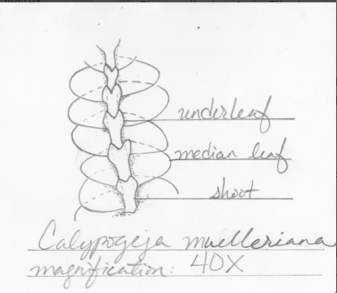 underleaf
median leaf
shoot
Calypogeja muelleriana
magnification: 40X